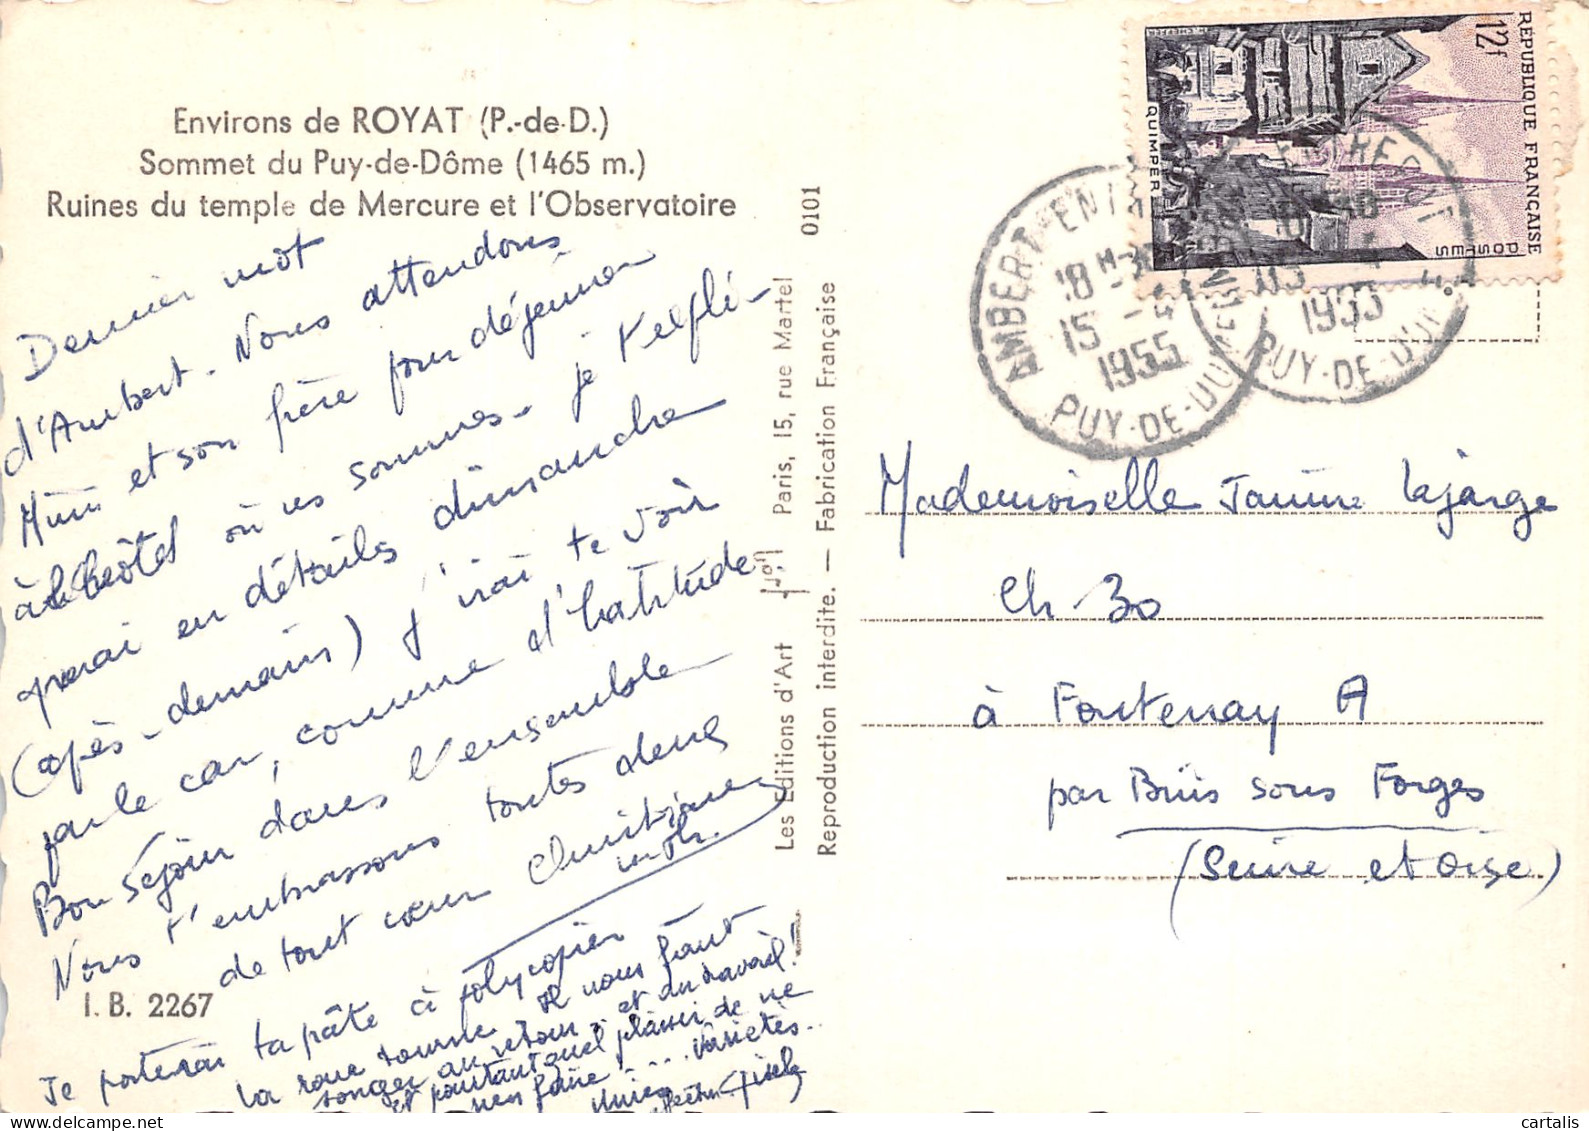 Environs de ROYAT (P.-de-D.)
Sommet du Puy-de-Dôme (1465 m.)
Ruines du temple de Mercure et l'Observatoire
Dernier mot
d'Ambert. Nous attendons
Mimi et son frère pour déjeuner
à l'hôtel où ns sommes. je t'expli-
querai en détails dimanche
(après-demain) j'irai te voir
par le car, comme d'habitude
Bon séjour dans l'ensemble
Nous t'embrassons toutes deux
de tout cœur
Je porterai ta pâte à polycopier
la roue tourne Il nous faut
songer au retour. et au travail!
et pourtant quel plaisir de ne
rien faire .... Variétés..
I. B. 2267
Les Editions d'Art Yvon Paris, 15, rue Martel
Reproduction interdite. — Fabrication Française
0101
REPUBLIQUE FRANÇAISE
12f
POSTES
QUIMPER
AMBERT-ENT
18 H 30
15 -
1955
PUY-DE-DOME
1955
PUY-DE-DOME
Mademoiselle Janine Lajarge
Ch 30
à Fontenay A
par Briis sous Forges
(Seine et Oise)
cartalis